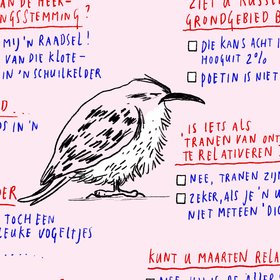 AN DE HEER-
NGSSTEMMING?
MIJ'N RAADSEL!
VAN DIE KLOTE-
IN 'N SCHUILKELDER
D...
DS IN 'N
DER
TOCH EEN
LEUKE VOGELTJES
.......
ZIET U RUSSE
GRONDGEBIED B
DIE KANS ACHT I
HOOGUIT 2%
POETIN IS NIET
'IS IETS ALS
TRANEN VAN ONT
TE RELATIVEREN?
NEE, TRANEN ZIJN
ZEKER, ALS JE 'N U
NIET METEEN 'DI
KUNT U MAARTEN RELA